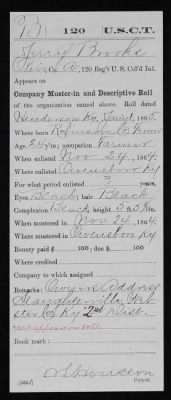 B | 120 | U.S.C.T.
Jerry Brooks
Pvt, Co. A, 120 Reg't U. S. Col'd Inf.
Appears on
Company Muster-in and Descriptive Roll
of the organization named above. Roll dated
Henderson Ky, 1865.
Where born Robinson Co
Age 24 y'rs; occupation Farmer
When enlisted Nov 24, 1864.
Where enlisted Owensboro Ky
For what period enlisted 3 years.
Eyes Black; hair Black
Complexion Black; height 5 ft. in.
When mustered in Nov 24, 1864.
Where mustered in Owensboro Ky
Bounty paid $ 100; due $ 100
Where credited
Company to which assigned
Remarks: Owners Address
Slaughterville Web-
ster Co Ky 2nd Dist.
Book mark:
Copyist.